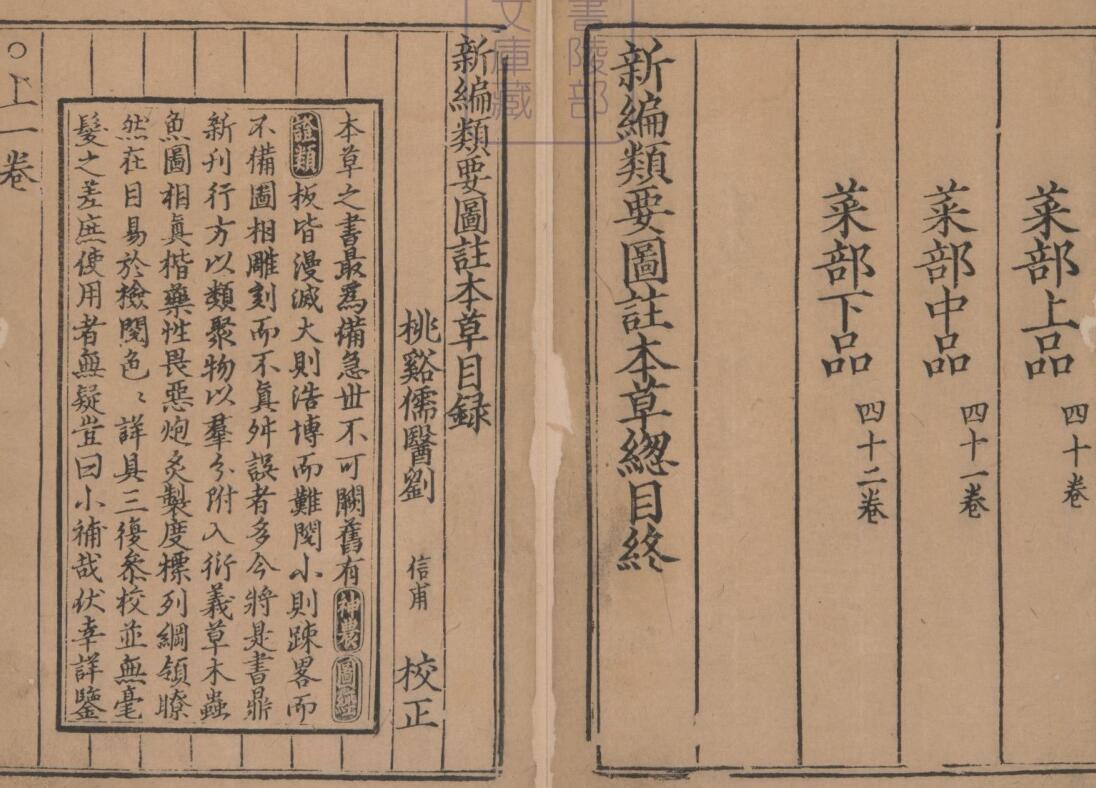 菜部上品 四十卷
菜部中品 四十一卷
菜部下品 四十二卷
新編類要圖註本草總目終
書陵部
文庫藏
新編類要圖註本草目録
桃谿儒醫劉 信甫 校正
本草之書最爲備急世不可闕舊有神農圖經
證類板皆漫滅大則浩博而難閱小則踈畧而
不備圖相雕刻而不真舛誤者多今將是書鼎
新刊行方以類聚物以羣分附入衍義草木蟲
魚圖相真楷藥性畏惡炮炙製度標列綱領瞭
然在目易於檢閱色〻詳具三復叅校並無毫
髮之差庶使用者無疑豈曰小補哉伏幸詳鑒
○上一卷